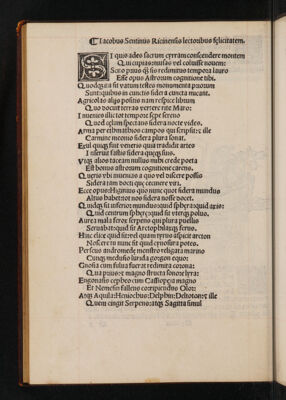 Iacobus Sentinus Ricinensis lectoribus felicitatem.
SI quis ades sacrum cyrram conscendere montem
Qui cupias: musas vel coluisse nouem:
Scito prius sis redimitus tempora lauro
Esse opus Astrorum cognitione tibi.
sit vatum testes monumenta priorum
Sunt: quibus in cunctis sidera cuncta micant.
Agricolas aliqo positis nam respice librum
Quo docuit terras vertere rite Maro:
Inuenies illic tot tempore sepe sereno
Quod celum spectans sidera nocte vides.
Arma per et bios campos qui scripsit: ille
Carmine meonio sidera plura sonat.
Est quisq fuit veneris quia tradidit artes
Inseruit fastis sidera suis.
Vtq alios taceam nullus nisi crede poeta
Est bonus astrorum cognitione carens.
Queris vbi inuenias a quo vel discere possis
Sidera tam docti que cecinere viri.
Ecce opus: Higinius quo nunc quot sidera mundus
Altus habet: nos sidera nosse docet.
sit inferior mundus: quid sphera: quid axis:
Quid centrum sphere: quid sit vterq polus.
Aurea mala ferox serpens qui plura puellis
Seruabat: quid sit Arctophilaxq ferus.
Hinc elice quid sit: vel quam tyrius aspicit arcton
Noscere tu nunc sit quid cynosura potes.
Perseus andromede monstro religata marino
Cumq medusino lurida gorgon equo:
Gnosia cum fulua fuerat redimita corona:
Qua puius: et magno structa sonore lyra:
Engonasin cepheo cum Cassiopeia magno
Et Nemesin fallens Olor:
Atq Aquila: Heniochus: Delphin: Deltoton: et ille
Quem cingit Serpens: atq Sagitta simul